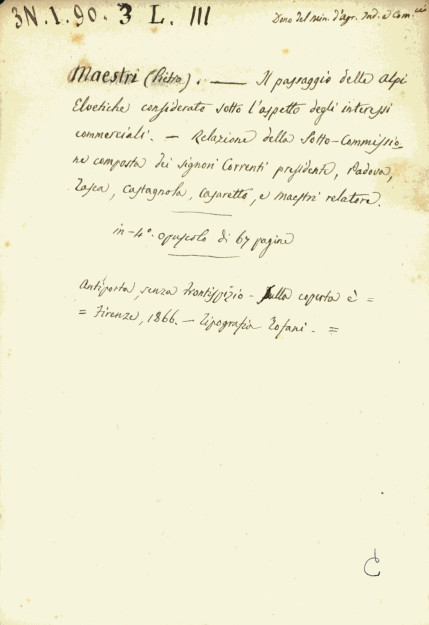 3N.1.90. 3 L. III
Dono del min. d'agr. Ind. e Com.cio
Maestri (Pietro). — Il passaggio delle Alpi
Elvetiche considerato sotto l'aspetto degli interessi
commerciali. — Relazione della Sotto-Commissio-
ne composta dei signori Correnti presidente, Padova,
Tasca, Castagnola, Casaretto, e Maestri relatore.
in-4°. opuscolo di 67 pagine
Antiporta, senza frontispizio - sulla coperta è =
= Firenze, 1866. — Tipografia Tofani. =